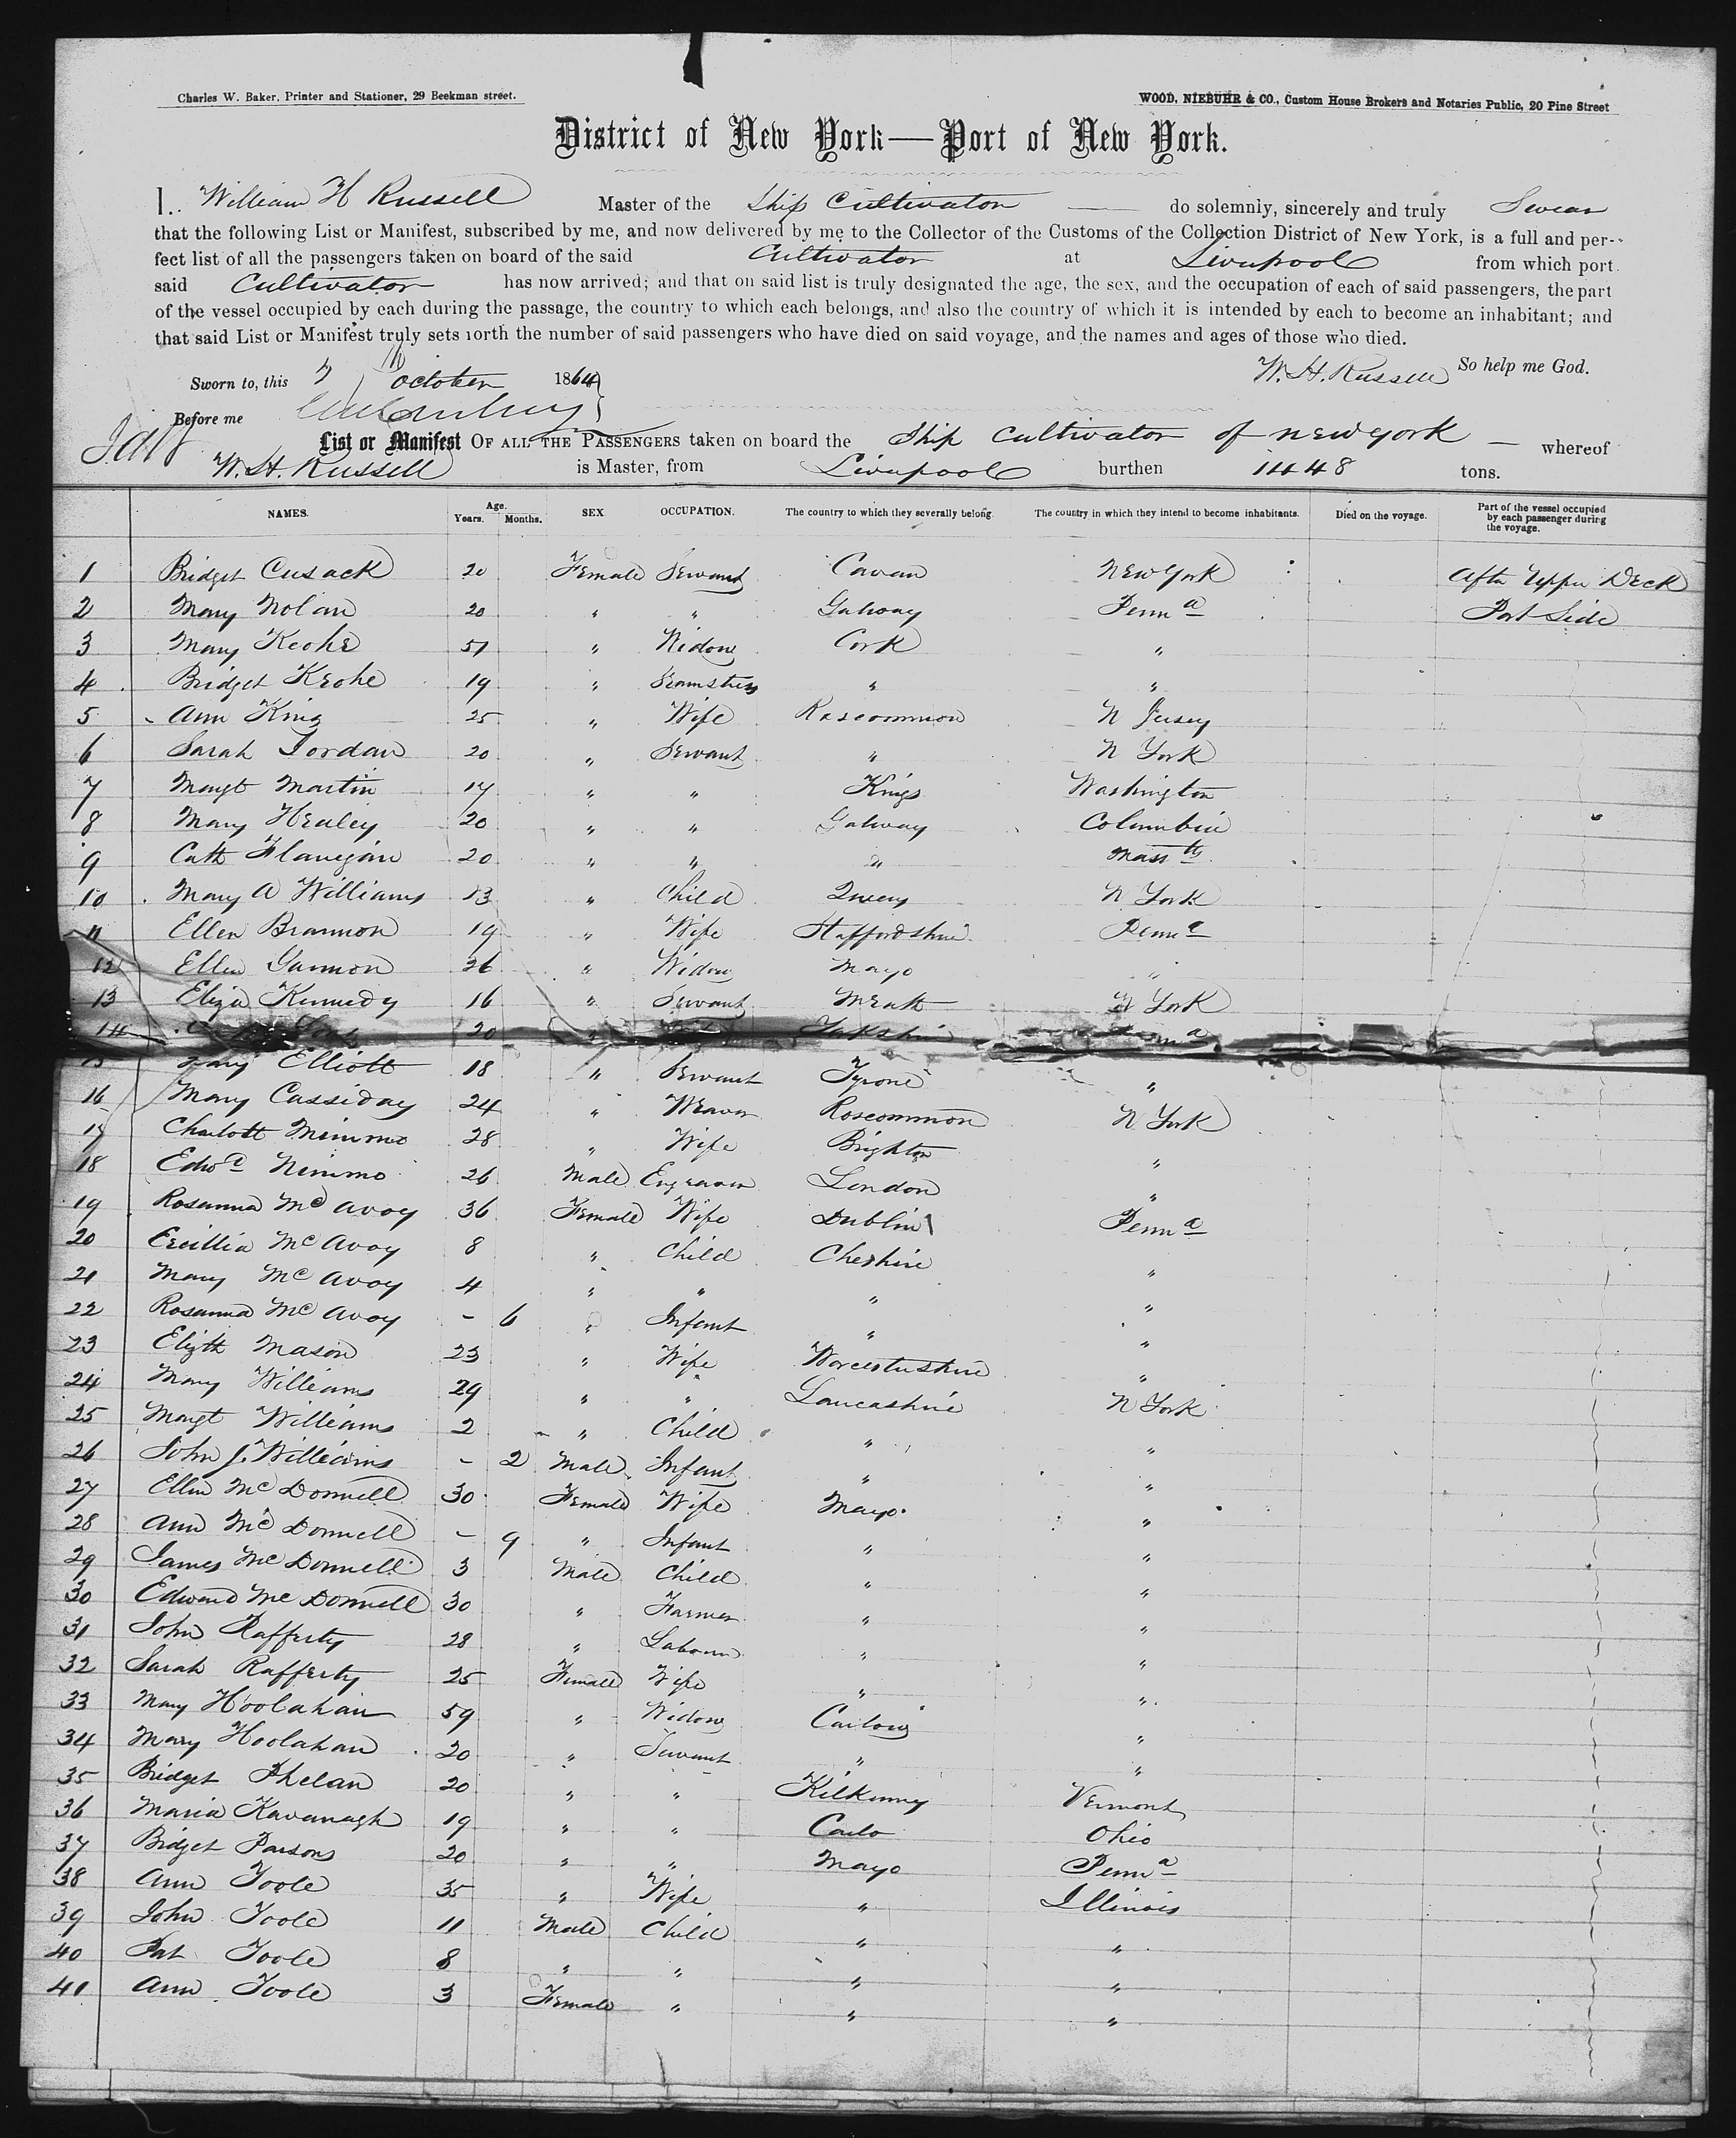 Charles W. Baker, Printer and Stationer, 29 Beekman street.
WOOD, NIEBUHR & CO., Custom House Brokers and Notaries Public, 20 Pine Street
District of New York—Port of New York.
I.. William H Russell Master of the Ship Cultivator do solemnly, sincerely and truly Swear
that the following List or Manifest, subscribed by me, and now delivered by me to the Collector of the Customs of the Collection District of New York, is a full and per-
fect list of all the passengers taken on board of the said Cultivator at Liverpool from which port
said Cultivator has now arrived; and that on said list is truly designated the age, the sex, and the occupation of each of said passengers, the part
of the vessel occupied by each during the passage, the country to which each belongs, and also the country of which it is intended by each to become an inhabitant; and
that said List or Manifest truly sets forth the number of said passengers who have died on said voyage, and the names and ages of those who died.
So help me God.
Sworn to, this 7 October 1864 W. H. Russell
Before me
List or Manifest OF ALL THE PASSENGERS taken on board the Ship Cultivator of New York — whereof
W. H. Russell is Master, from Liverpool burthen 1448 tons.
NAMES. Age. Years. Months. SEX. OCCUPATION. The country to which they severally belong. The country in which they intend to become inhabitants. Died on the voyage. Part of the vessel occupied by each passenger during the voyage.
1 Bridget Cusack 20 Female Servant Cavan New York After Upper Deck
2 Mary Nolan 20 " " Galway Penna Port Side
3 Mary Keohe 51 " Widow Cork "
4 Bridget Keohe 19 " Seamstress " "
5 Ann King 25 " Wife Roscommon N Jersey
6 Sarah Jordan 20 " Servant " N York
7 Margt Martin 17 " " Kings Washington
8 Mary Healey 20 " " Galway Columbia
9 Cath Flanegan 20 " " " Massts
10 Mary A Williams 13 " Child Queens N York
11 Ellen Brannon 19 " Wife Staffordshire Penna
12 Ellen Gannon 26 " Widow Mayo "
13 Eliza Kennedy 16 " Servant Meath N York
14 20 " Yorkshire
15 Mary Elliott 18 " Servant Tyrone "
16 Mary Cassiday 24 " Weaver Roscommon N York
17 Charlott Nimmo 28 " Wife Brighton "
18 Edwd Nimmo 26 Male Engraver London "
19 Rosanna Mc Avoy 36 Female Wife Dublin Penna
20 Cecillia Mc Avoy 8 " Child Cheshire "
21 Mary Mc Avoy 4 " " " "
22 Rosanna Mc Avoy - 6 " Infant " "
23 Elizth Mason 23 " Wife Worcestershire "
24 Mary Williams 29 " " Lancashire N York
25 Margt Williams 2 " Child " "
26 John J. Williams - 2 Male Infant " "
27 Ellen Mc Donnell 30 Female Wife Mayo "
28 Ann Mc Donnell - 9 " Infant " "
29 James Mc Donnell 3 Male Child " "
30 Edward Mc Donnell 30 " Farmer " "
31 John Rafferty 28 " Labourer " "
32 Sarah Rafferty 25 Female Wife " "
33 Mary Hoolahan 59 " Widow Carlow "
34 Mary Hoolahan 20 " Servant " "
35 Bridget Phelan 20 " " Kilkenny Vermont
36 Maria Kavanagh 19 " " Carlo Ohio
37 Bridget Parsons 20 " " Mayo Penna
38 Ann Toole 35 " Wife " Illinois
39 John Toole 11 Male Child " "
40 Pat Toole 8 " " " "
41 Ann Toole 3 Female " " "